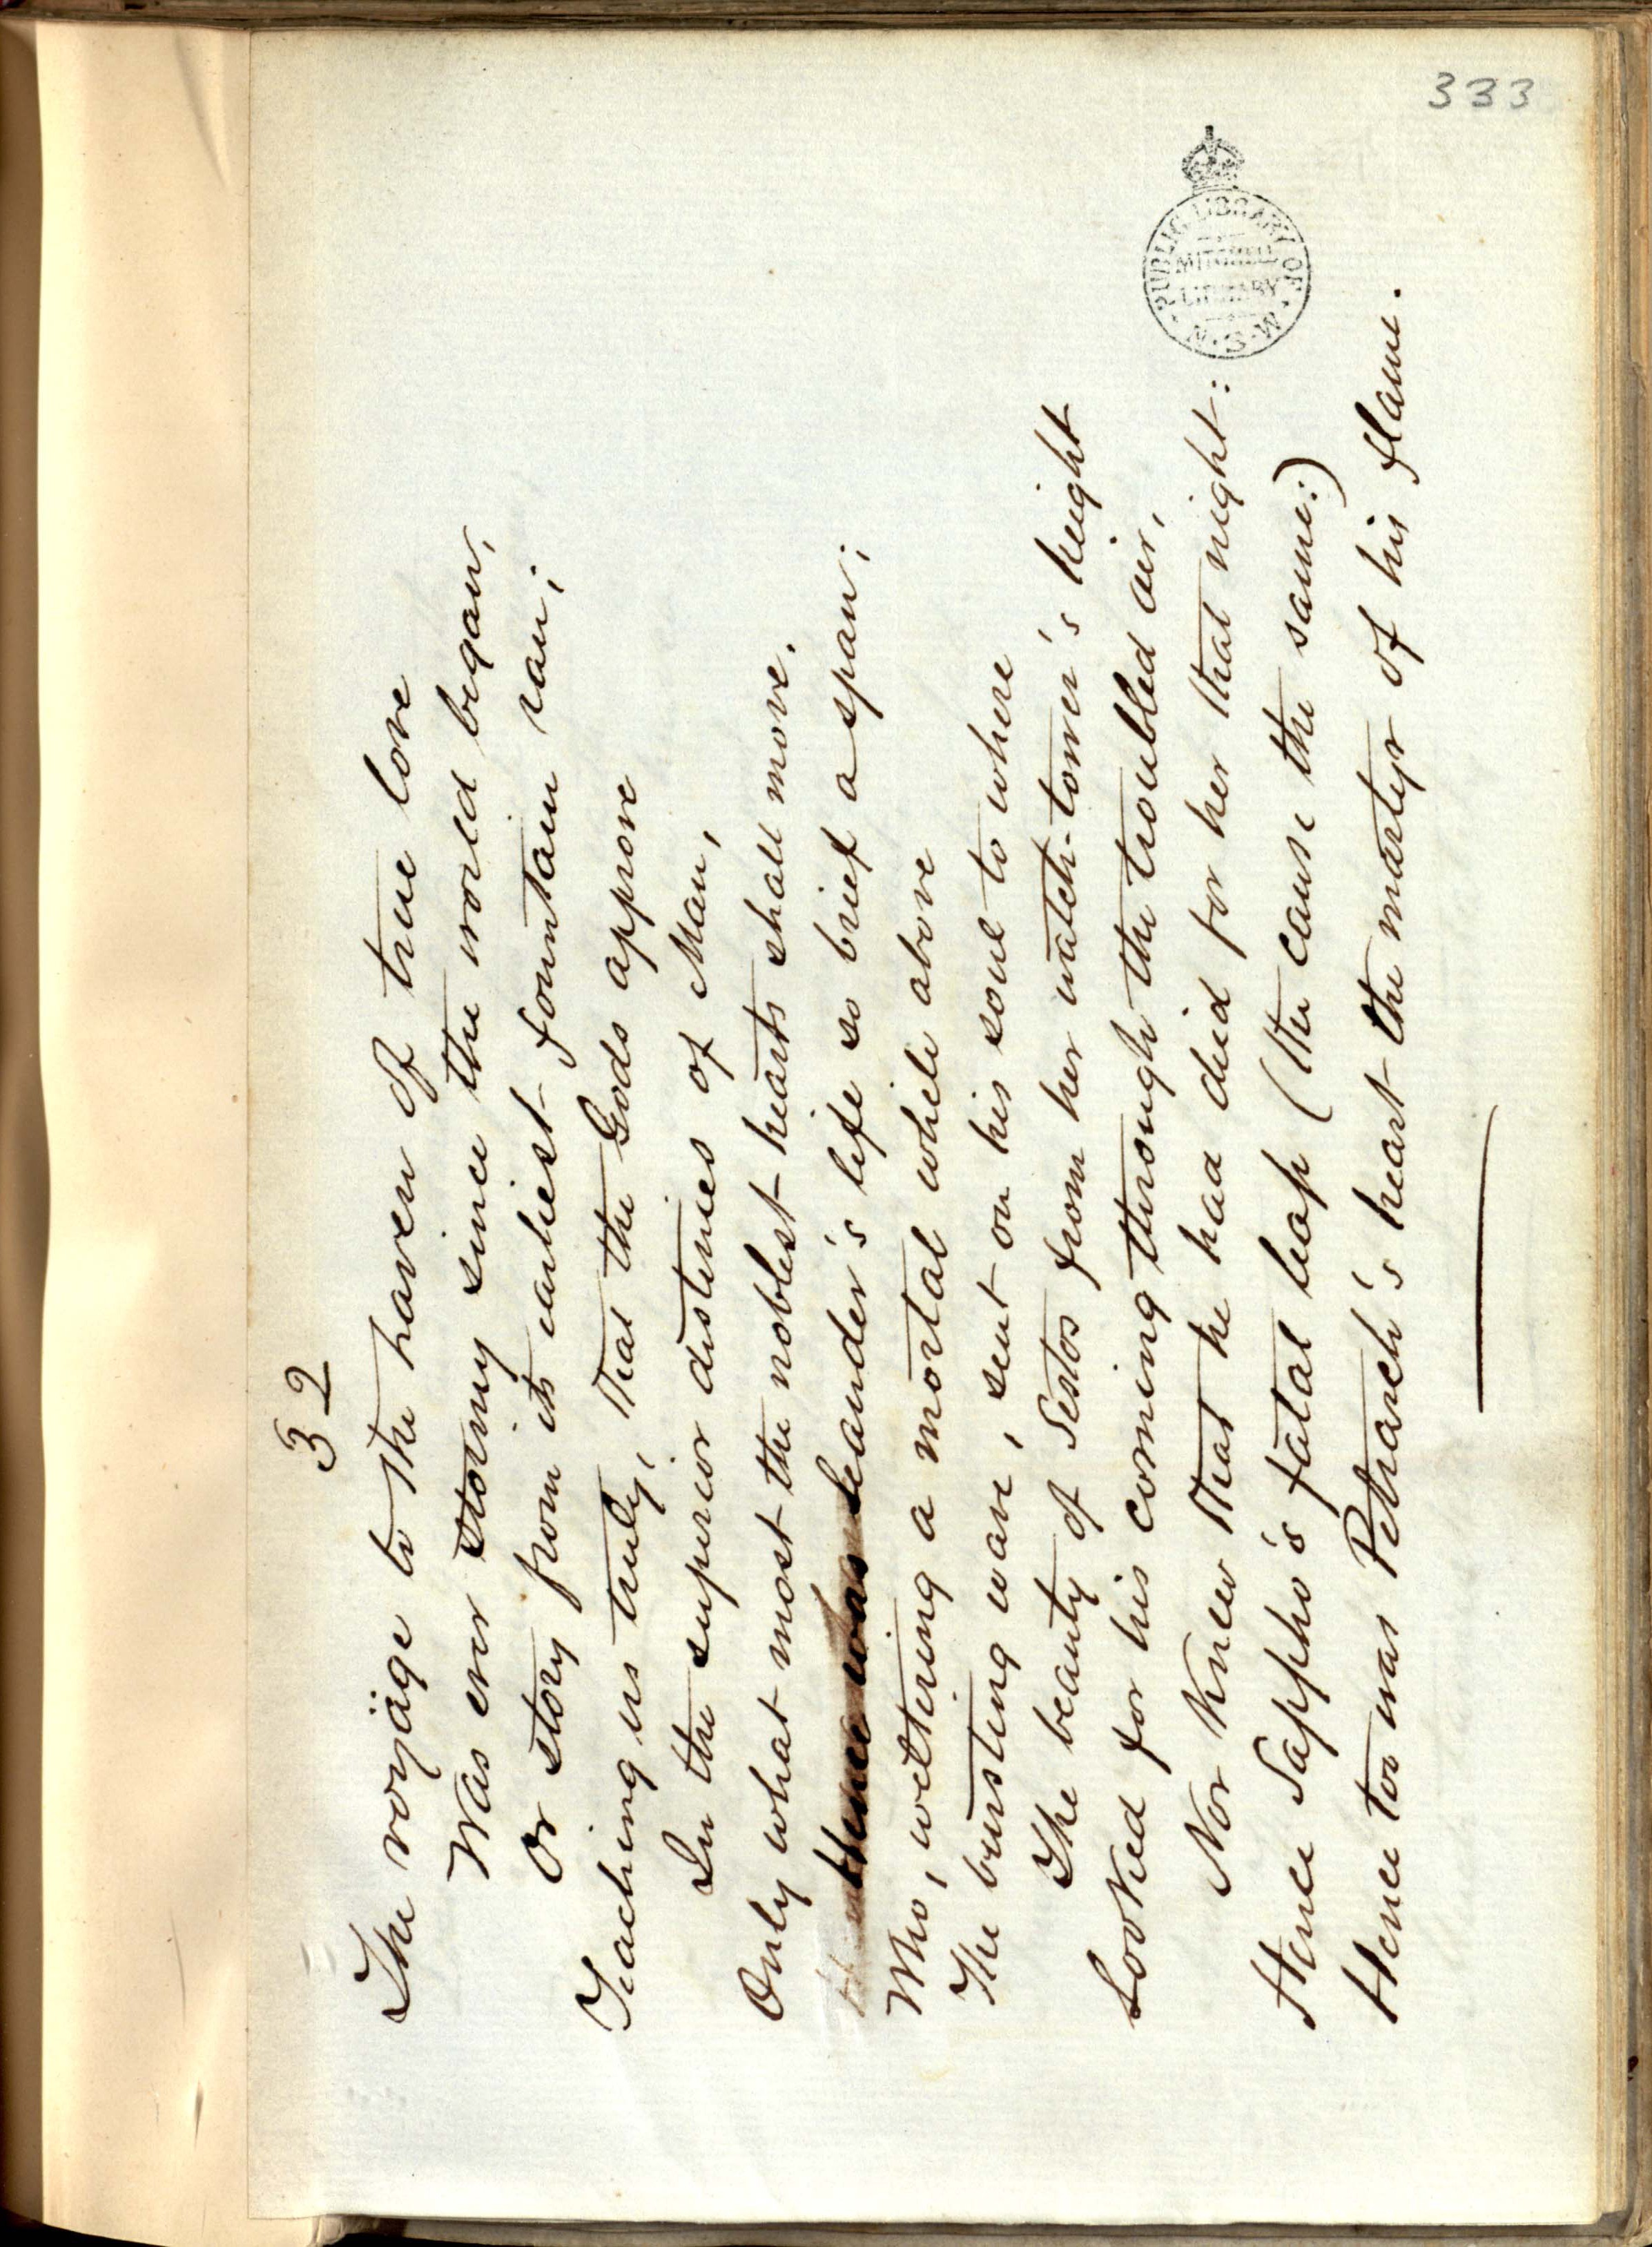 333
32
The voyage to the haven of true love
Was ever stormy since the world began,
Or story from its earliest fountain ran;
Teaching us truly, that the Gods approve
In the superior distinies of Man,
Only what most the noblest hearts shall move.
Hence was Leander's life so brief a span;
Who, weltering a mortal while above
The bursting wave, sent on his soul to where
The beauty of Sestos from her watch-tower's height
Looked for his coming through the troubled air,
Nor knew that he had died for her that night:
Hence Sappho's fatal leap (the cause the same:)
Hence too was Petrarch's heart the martyr of his flame.
PUBLIC LIBRARY OF N.S.W.
MITCHELL
LIBRARY